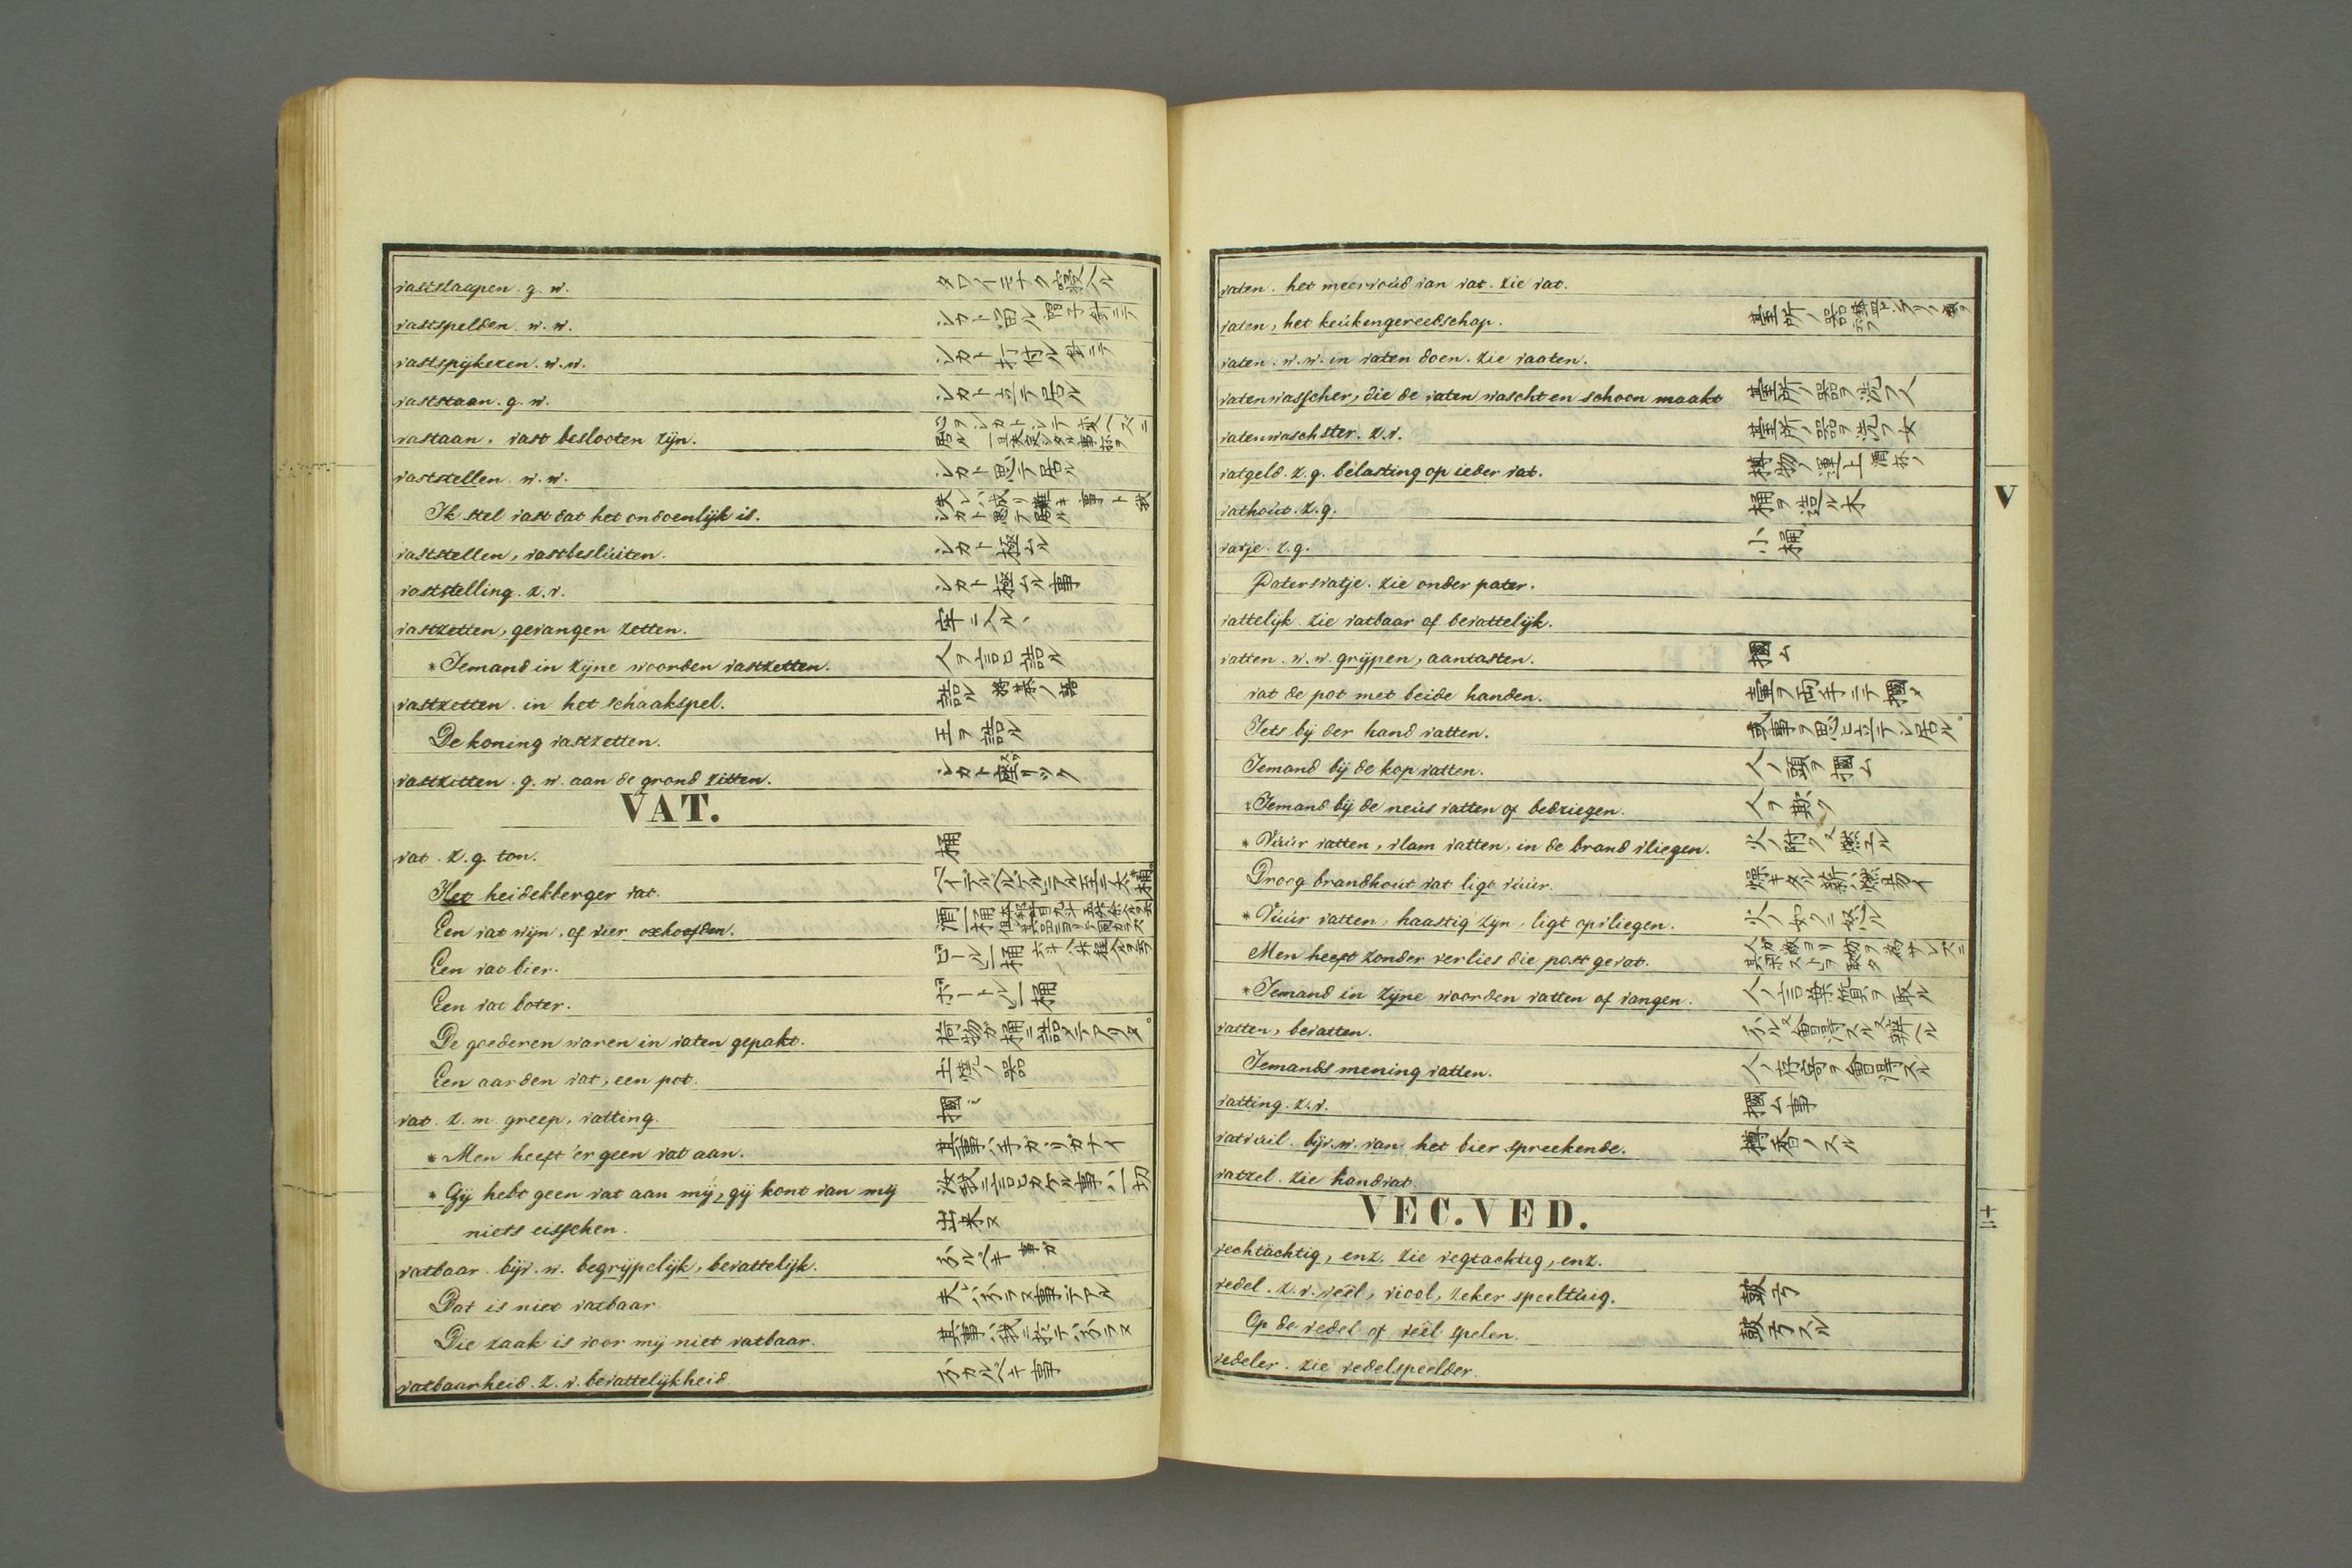 vastslaapen. g. w. タワイモナク寝入ル
vastspelden. w. w. シカト留ル 帽子針ニテ
vastspijkeren. w. w. シカト打付ル 釘ニテ
vaststaan. g. w. シカト立テ居ル
vastaan, vast beslooten zijn.
vaststellen. w. w. シカト思テ居ル
Ik stel vast dat het ondoenlijk is.
vaststellen, vastbesluiten. シカト極ムル
vaststelling. z. v. シカト極ムル事
vastzetten, gevangen zetten. 牢ニ入ル
*Iemand in zijne woorden vastzetten. 人ヲ言ヒ詰ル
vastzetten. in het schaakspel. 詰ル 将棊ノ語
De koning vastzetten. 王ヲ詰ル
vastzitten. g. w. aan de grond zitten.
VAT.
vat. z. g. ton. 桶
Het heidelberger vat.
Een vat wijn, of vier oxhoofden.
Een vat bier.
Een vat boter. ボートル一桶
De goederen waren in vaten gepakt. 荷物ガ桶ニ詰メテアリタ。
Een aarden vat, een pot. 土焼ノ器
vat. z. m. greep, vatting. 摑ミ
*Men heeft 'er geen vat aan. 其事ハ手ガヽリガナイ
*Gij hebt geen vat aan mij, gij kont van mij 汝我ニ言ヒカケル事ハ一切
niets eisschen. 出来ヌ
vatbaar. bijv. w. begrijpelijk, bevattelijk.
Dat is niet vatbaar. 夫レハ分ラヌ事デアル
Die zaak is voor mij niet vatbaar. 其事ハ我ニ於テハ分ラヌ
vatbaarheid. z. v. bevattelijkheid. 分カルベキ事
vaten. het meervoud van vat. zie vat.
vaten, het keukengereedschap.
vaten. w. w. in vaten doen. zie vaaten.
vatenwasscher, die de vaten wascht en schoon maakt 臺所ノ器ヲ洗フ人
vatenwaschster. z. v. 臺所ノ器ヲ洗フ女
vatgeld. z. g. belasting op ieder vat.
vathout. z. g. 桶ヲ造ル木
vatje. z. g. 小桶
Patersvatje. zie onder pater.
vattelijk. zie vatbaar of bevattelijk.
vatten. w. w. grijpen, aantasten. 摑ム
vat de pot met beide handen. 壷ヲ両手ニテ摑メ
Iets bij der hand vatten.
Iemand bij de kop vatten. 人ノ頭ヲ摑ム
*Iemand bij de neus vatten of bedriegen. 人ヲ欺ク
*Vuur vatten, vlam vatten, in de brand vliegen. 火ノ附ク 又 燃エル
Droog brandhout vat ligt vuur. 燥キタル薪ハ燃易イ
*Vuur vatten, haastig zijn, ligt opvliegen. 火ノ如クニ怒ル
Men heeft zonder verlies die post gevat.
*Iemand in zijne woorden vatten of vangen. 人ノ言葉質ヲ取ル
vatten, bevatten.
Iemands mening vatten. 人ノ存寄ヲ會得スル
vatting. z. v. 摑ム事
vatvuil. bijv. w. van het bier spreekende. 樽香ノスル
vatzel. zie handvat.
VEC. VED.
vechtachtig, enz. zie vegtachtig, enz.
vedel. z. v. veêl, viool, zeker speeltuig. 皷弓
Op de vedel of veêl spelen. 皷弓スル
vedeler. zie vedelspeelder.
V
十二